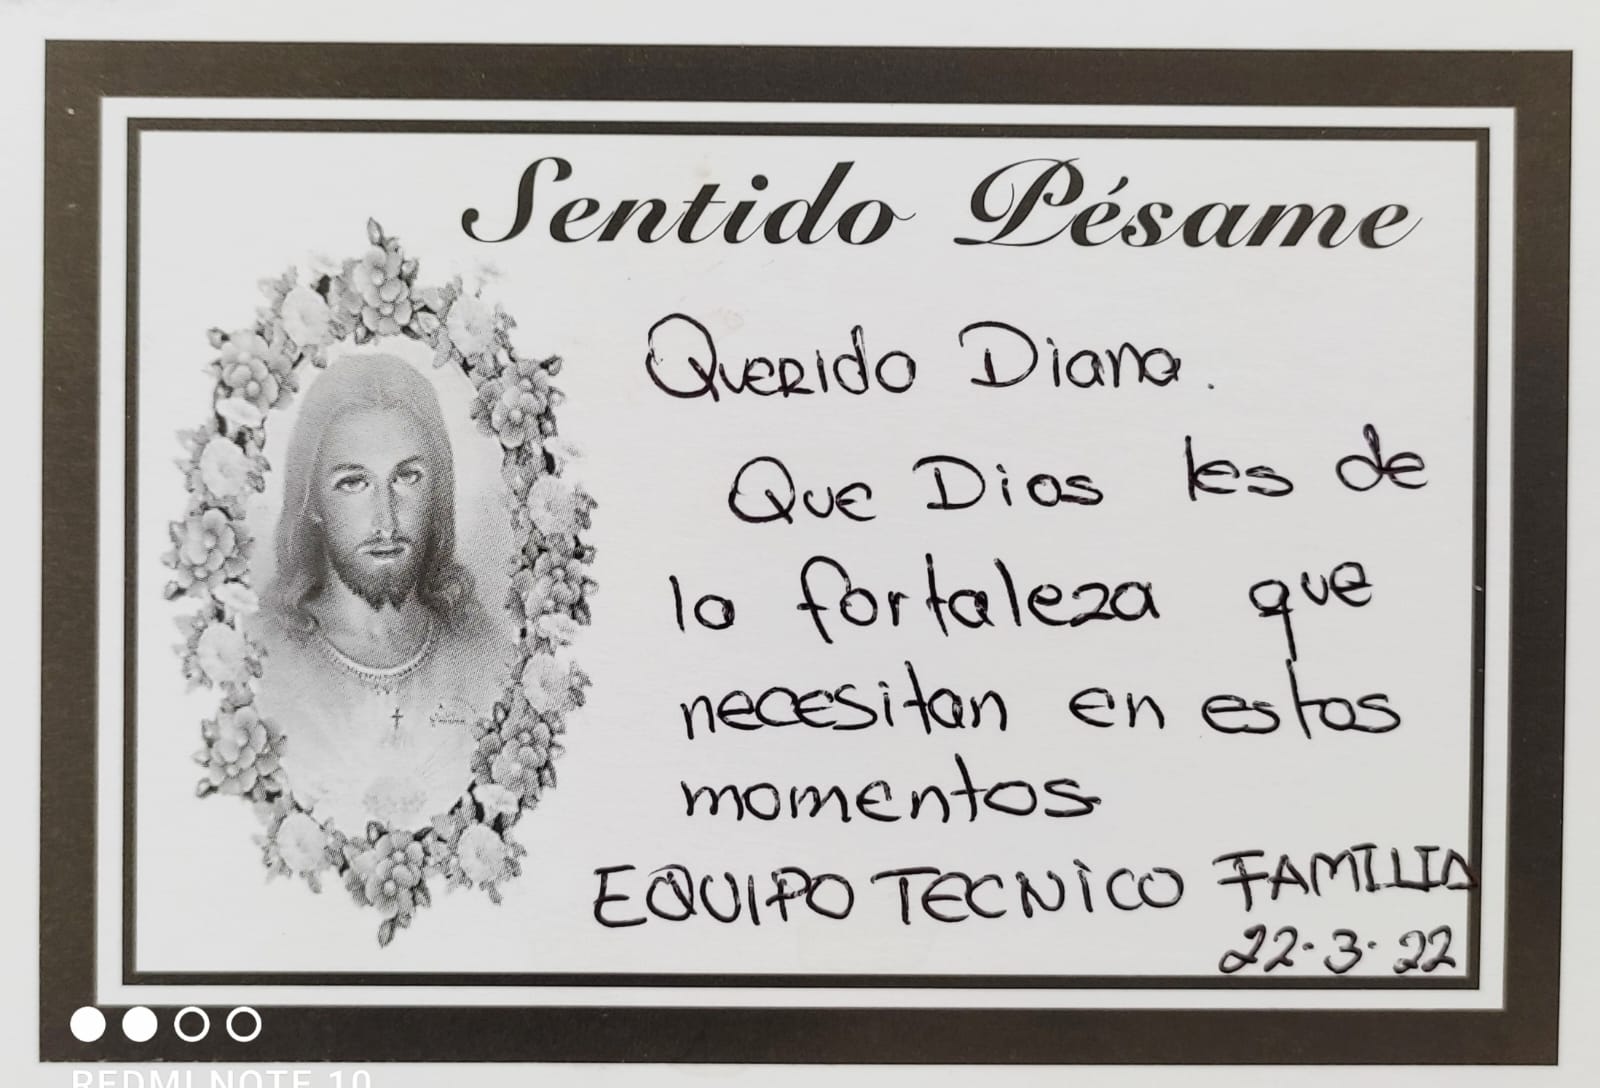 Sentido Pésame
Querido Diana.
Que Dios les de
la fortaleza que
necesitan en estos
momentos
EQUIPO TECNICO FAMILIA
22-3-22
REDMI NOTE 10